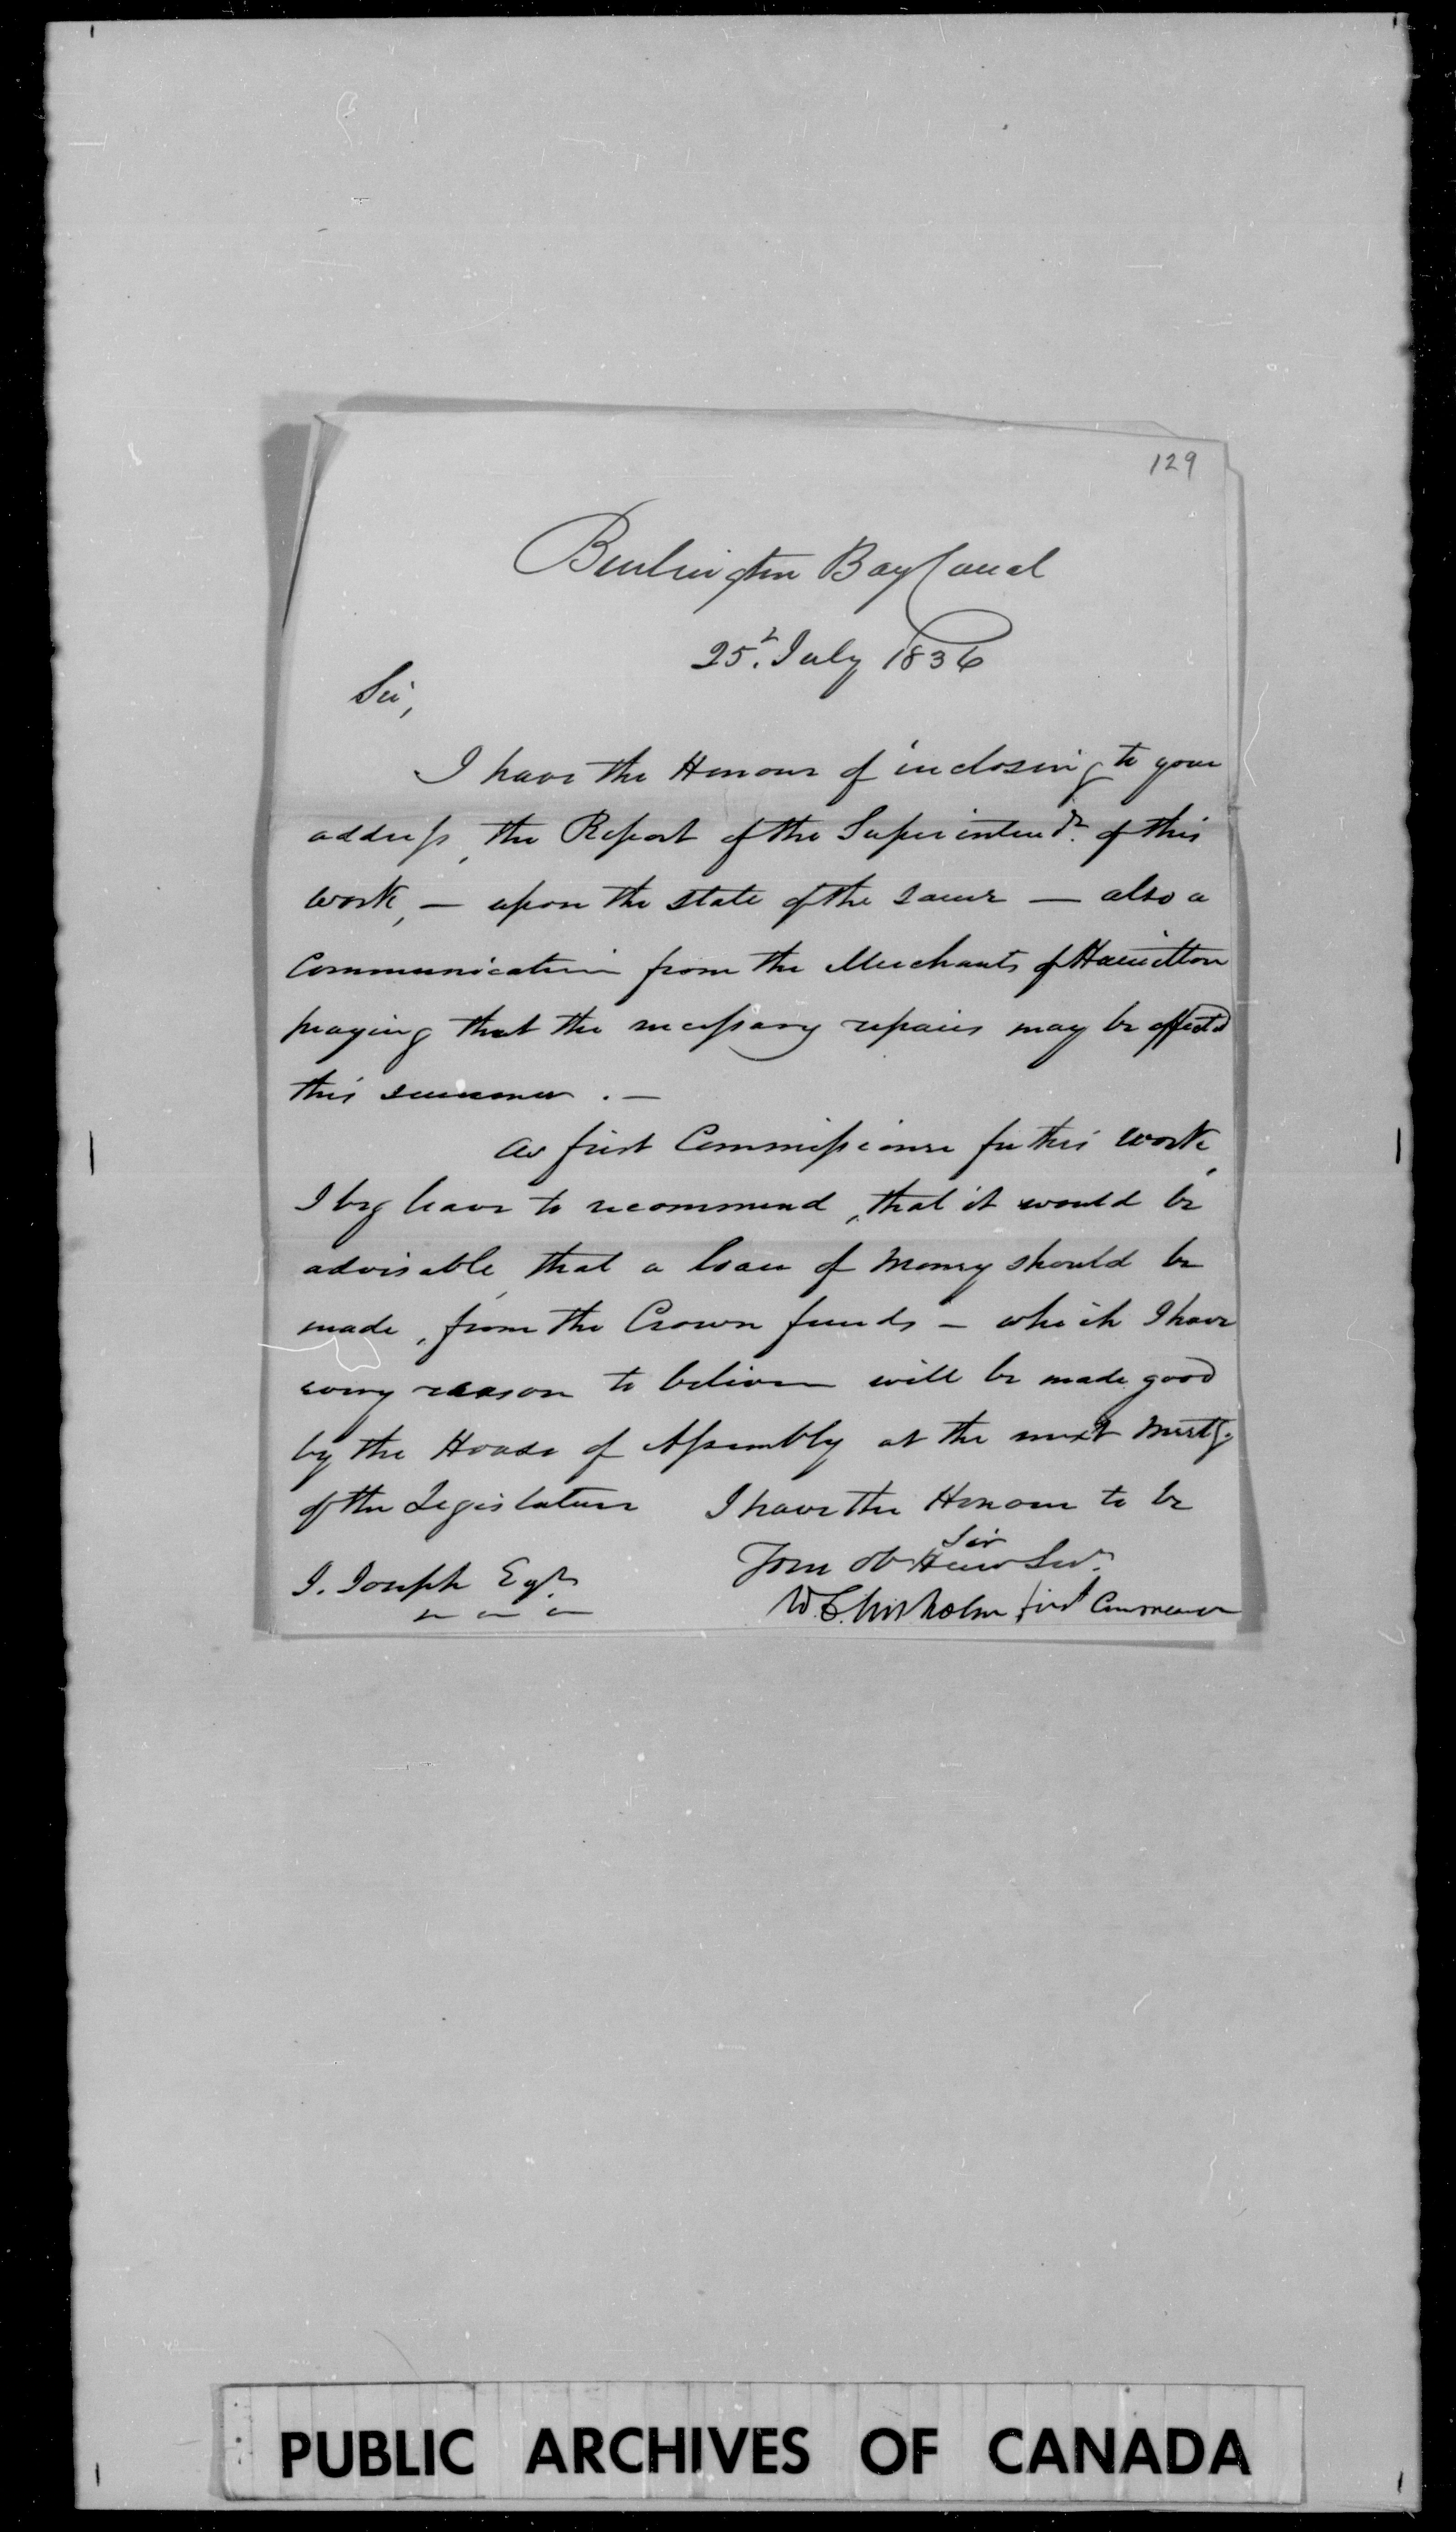 129
Burlington Bay Canal
25th. July 1836
Sir,
I have the Honour of inclosing to your
address, the Report of the Superintendt. of this
work, — upon the state of the same — also a
Communication from the Merchants of Hamilton
praying that the necessary repairs may be effected
this summer. —
As first Commissioner for this work,
I beg leave to recommend, that it would be
advisable, that a loan of money should be
made, from the Crown funds — which I have
every reason to believe will be made good
by the House of Assembly at the next meetg.
of the Legislature I have the Honour to be
Sir
Your Ob Hum Svt.
J. Joseph Esqr.
W. Chisholm first Commissioner
PUBLIC ARCHIVES OF CANADA